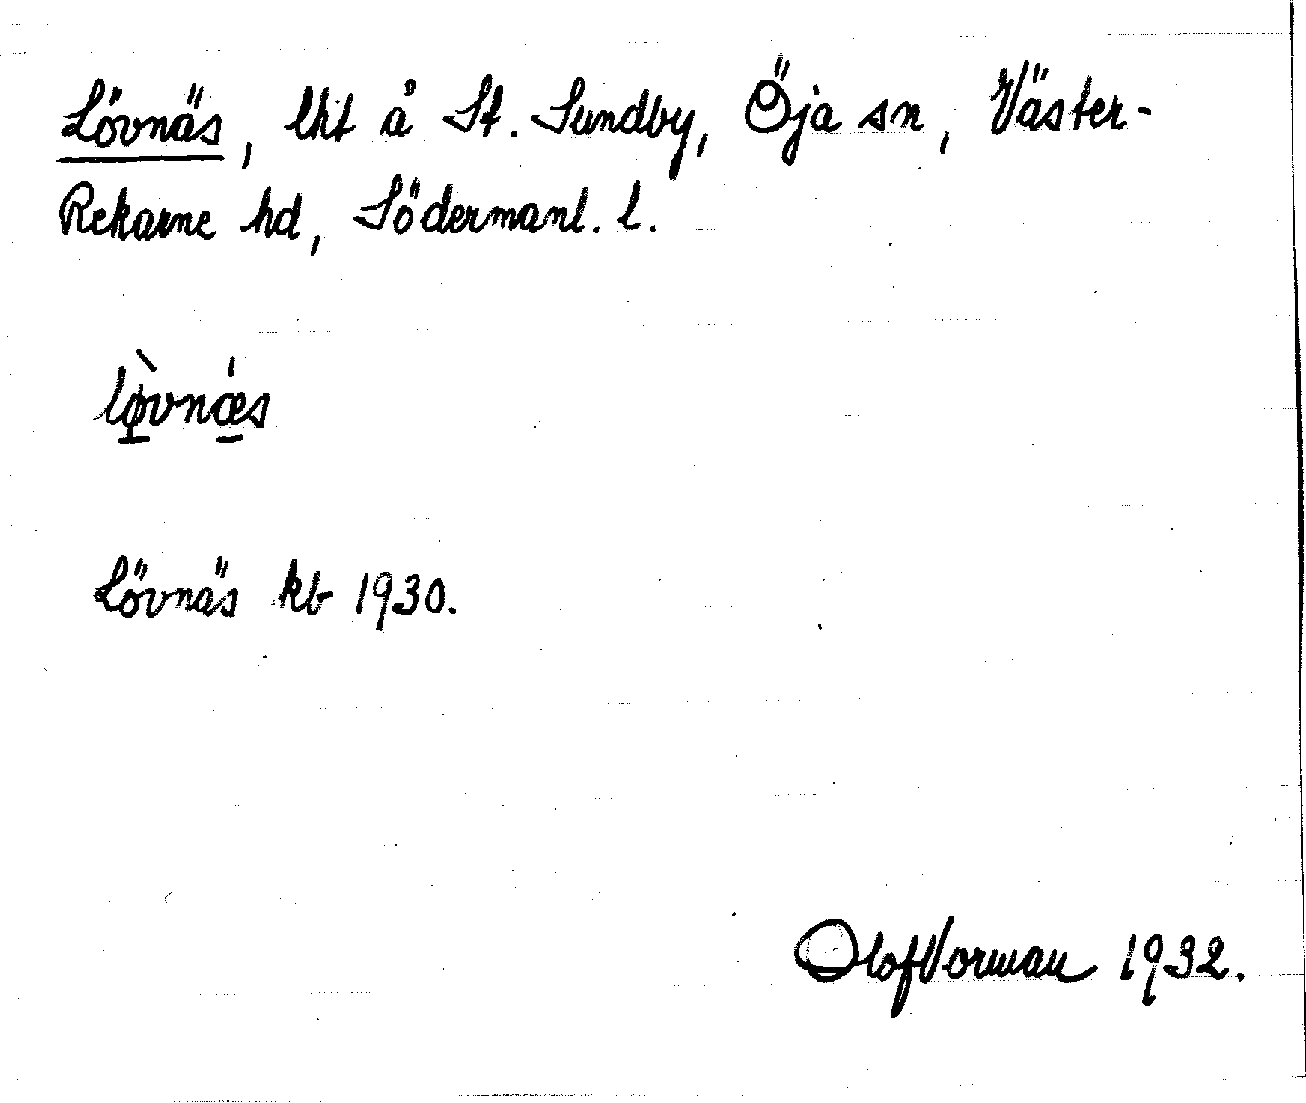 Lövnäs, lht å St. Sundby, Öja sn, Väster-
Rekarne hd, Södermanl. l.
lø̱̀vnǽ̱s
Lövnäs kb 1930.
Olof Vorman 1932.